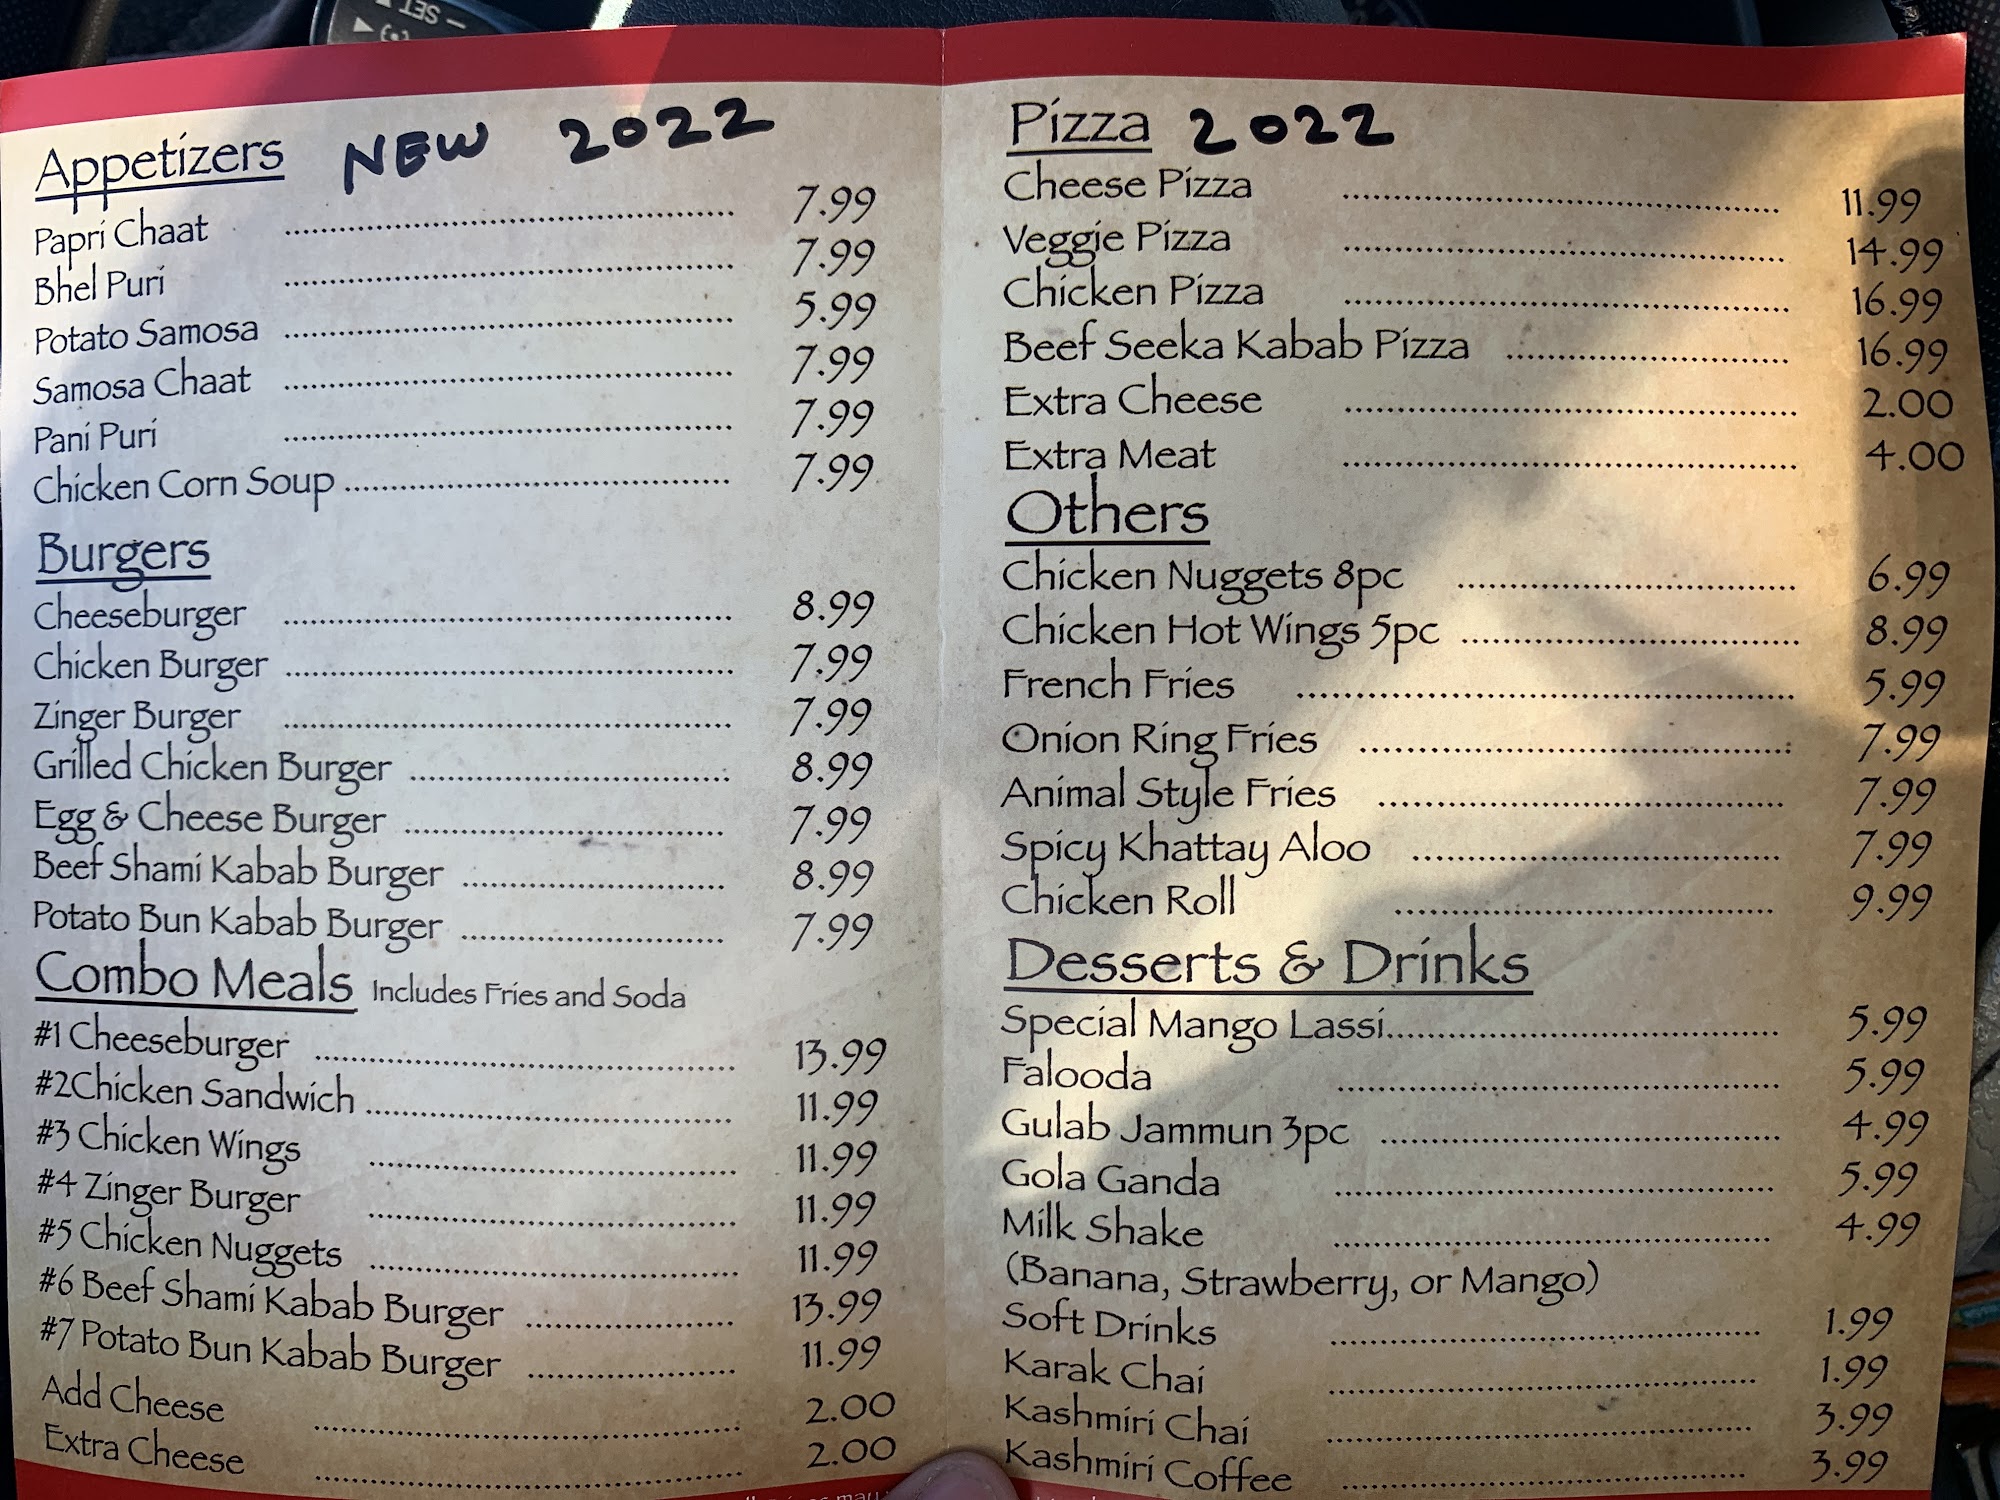 Appetizers NEW 2022
Papri Chaat 7.99
Bhel Puri 7.99
Potato Samosa 5.99
Samosa Chaat 7.99
Pani Puri 7.99
Chicken Corn Soup 7.99
Burgers
Cheeseburger 8.99
Chicken Burger 7.99
Zinger Burger 7.99
Grilled Chicken Burger 8.99
Egg & Cheese Burger 7.99
Beef Shami Kabab Burger 8.99
Potato Bun Kabab Burger 7.99
Combo Meals Includes Fries and Soda
#1 Cheeseburger 13.99
#2Chicken Sandwich 11.99
#3 Chicken Wings 11.99
#4 Zinger Burger 11.99
#5 Chicken Nuggets 11.99
#6 Beef Shami Kabab Burger 13.99
#7 Potato Bun Kabab Burger 11.99
Add Cheese 2.00
Extra Cheese 2.00
Pizza 2022
Cheese Pizza 11.99
Veggie Pizza 14.99
Chicken Pizza 16.99
Beef Seeka Kabab Pizza 16.99
Extra Cheese 2.00
Extra Meat 4.00
Others
Chicken Nuggets 8pc 6.99
Chicken Hot Wings 5pc 8.99
French Fries 5.99
Onion Ring Fries 7.99
Animal Style Fries 7.99
Spicy Khattay Aloo 7.99
Chicken Roll 9.99
Desserts & Drinks
Special Mango Lassi 5.99
Falooda 5.99
Gulab Jammun 3pc 4.99
Gola Ganda 5.99
Milk Shake 4.99
(Banana, Strawberry, or Mango)
Soft Drinks 1.99
Karak Chai 1.99
Kashmiri Chai 3.99
Kashmiri Coffee 3.99
SET